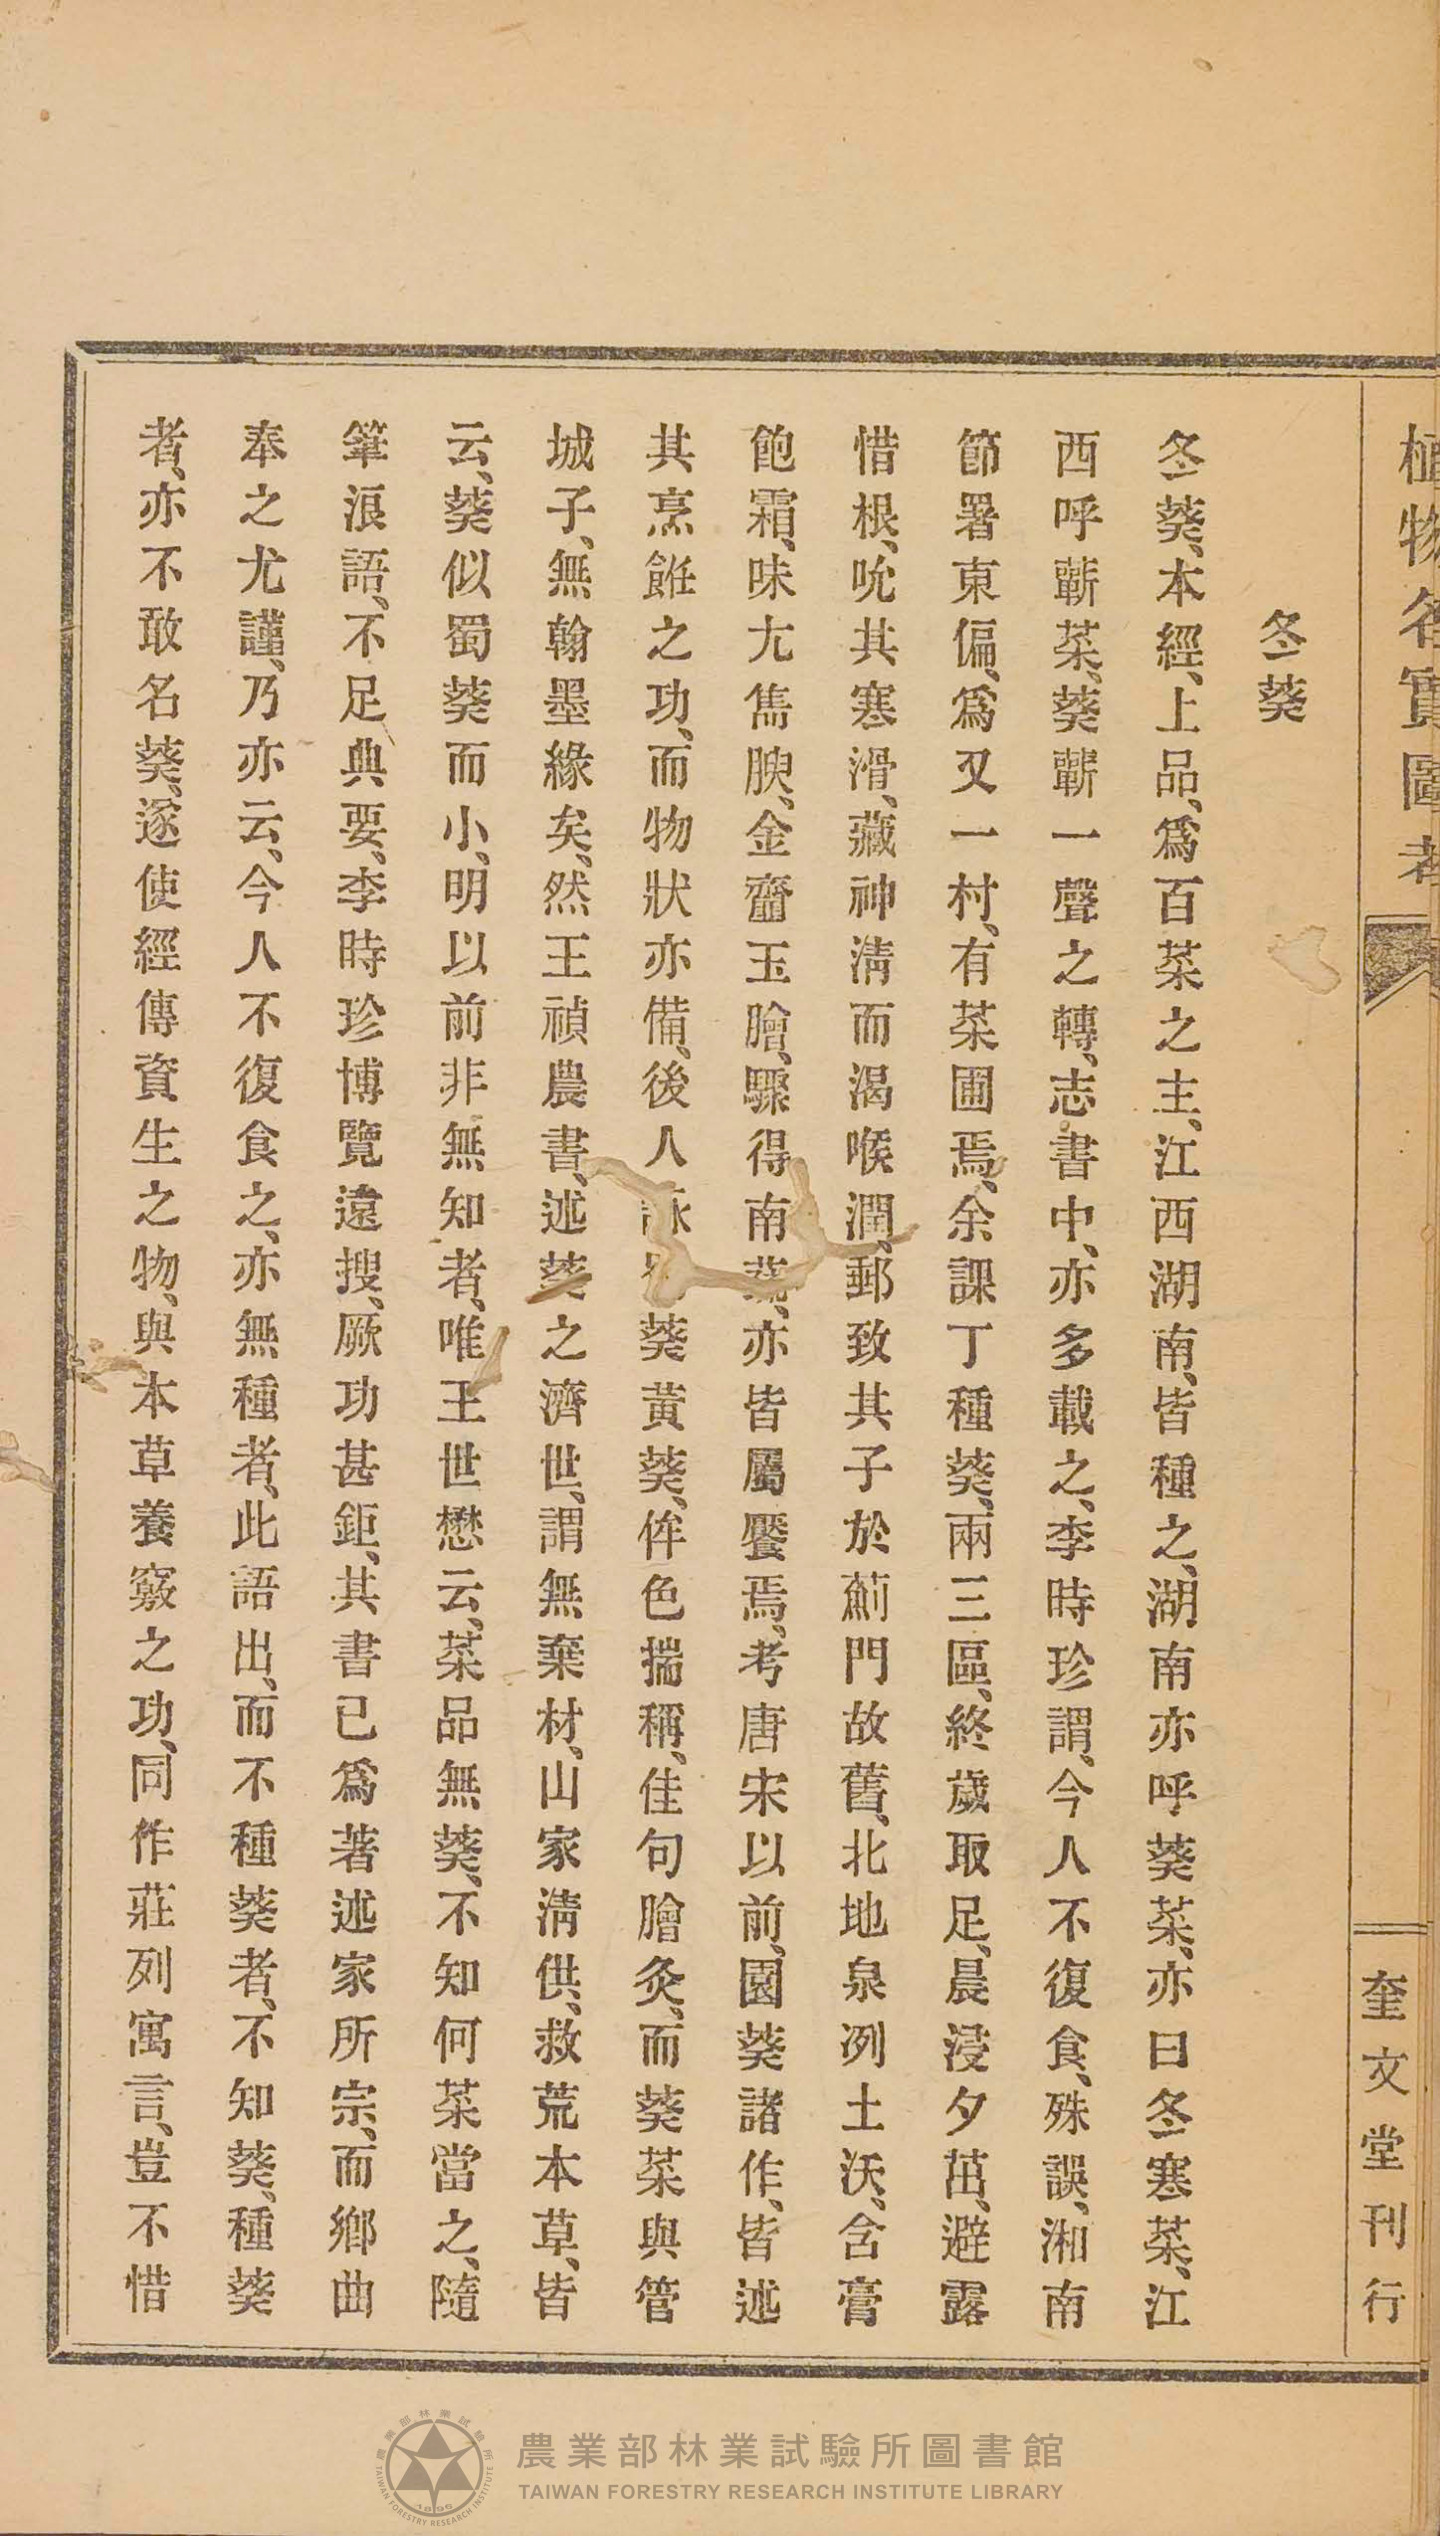 植物名實圖考
奎文堂刊行
冬葵
冬葵、本經、上品、爲百菜之主、江西湖南、皆種之、湖南亦呼葵菜、亦曰冬寒菜、江
西呼蘄菜、葵蘄一聲之轉、志書中、亦多載之、李時珍謂、今人不復食、殊誤、湘南
節署東偏、爲又一村、有菜圃焉、余課丁種葵、兩三區、終歲取足、晨浸夕茁、避露
惜根、吮其寒滑、藏神淸而渴喉潤、郵致其子於薊門故舊、北地泉冽土沃、含膏
飽霜、味尤雋腴、金齏玉膾、驟得南蔬、亦皆屬饜焉、考唐宋以前、園葵諸作、皆述
其烹飪之功、而物狀亦備、後人詠葵黃葵、侔色揣稱、佳句膾灸、而葵菜與管
城子、無翰墨緣矣、然王禎農書、述葵之濟世、謂無棄材、山家淸供、救荒本草、皆
云、葵似蜀葵而小、明以前非無知者、唯王世懋云、菜品無葵、不知何菜當之、隨
筆浪語、不足典要、李時珍博覽遠搜、厥功甚鉅、其書已爲著述家所宗、而鄉曲
奉之尤謹、乃亦云、今人不復食之、亦無種者、此語出、而不種葵者、不知葵、種葵
者、亦不敢名葵、遂使經傳資生之物、與本草養竅之功、同作莊列寓言、豈不惜
農業部林業試驗所圖書館
TAIWAN FORESTRY RESEARCH INSTITUTE LIBRARY
農業部林業試驗所
TAIWAN FORESTRY RESEARCH INSTITUTE
1896